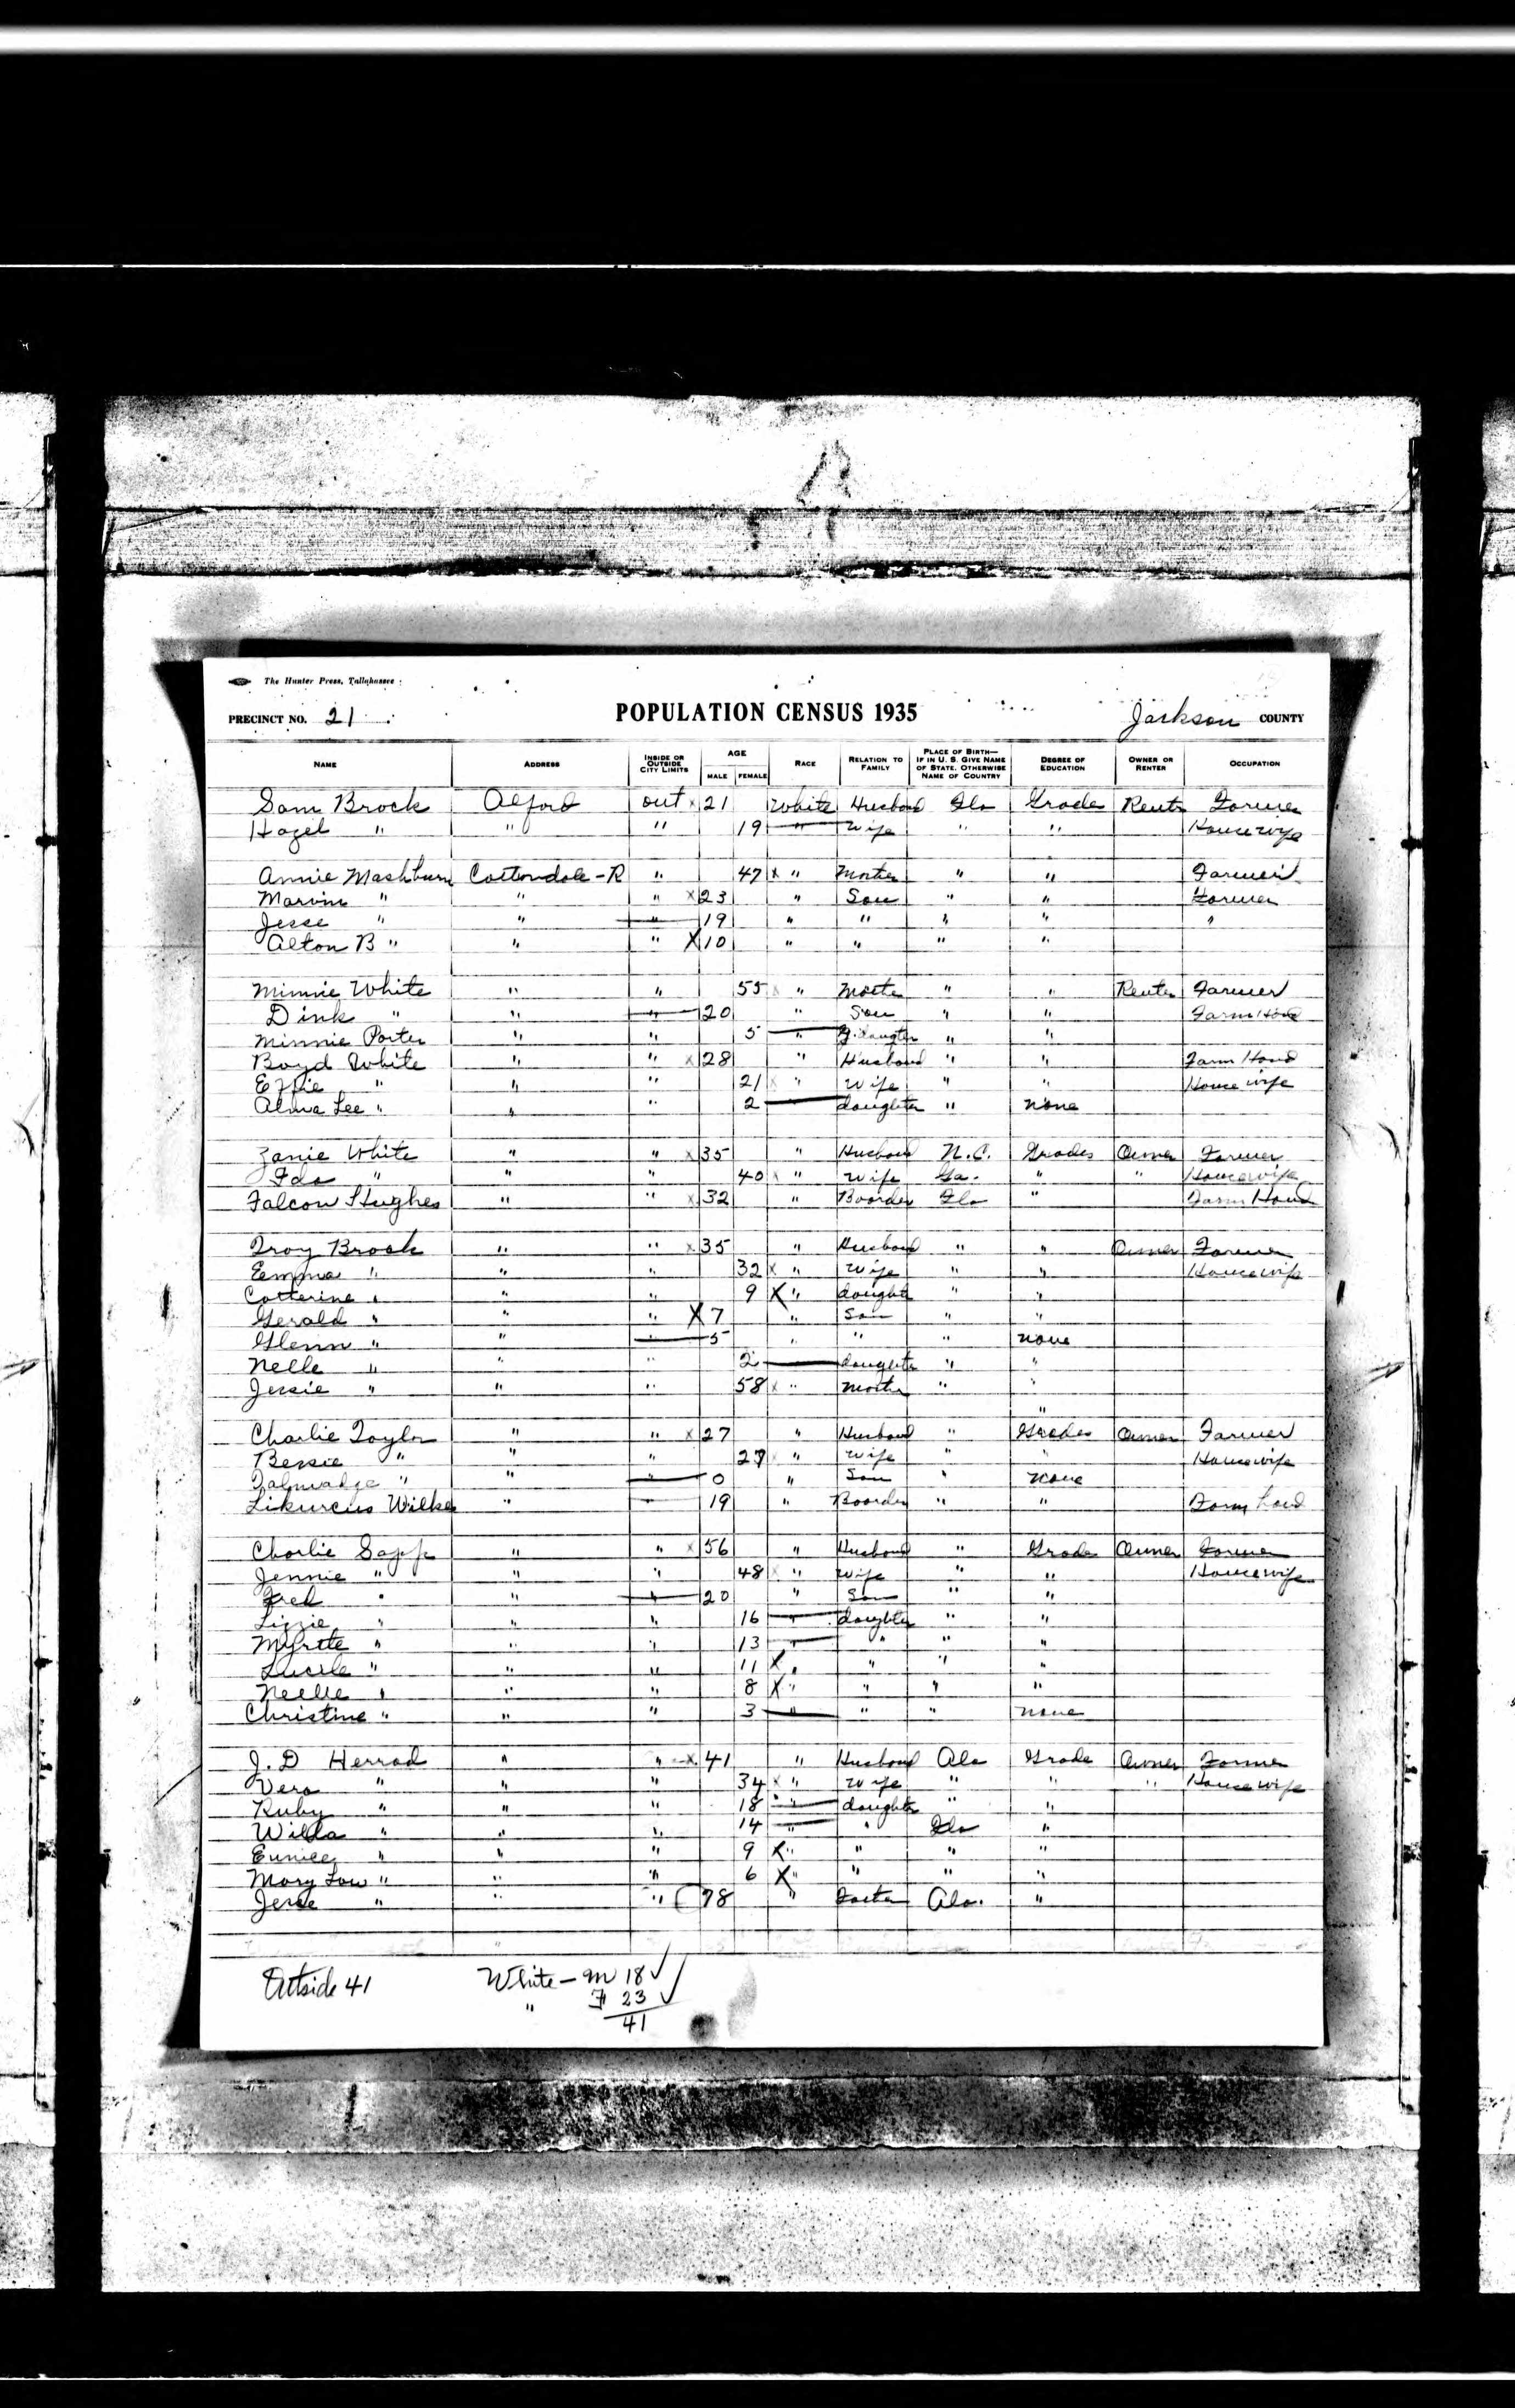 The Hunter Press, Tallahassee
PRECINCT NO. 21 POPULATION CENSUS 1935 Jackson COUNTY
NAME ADDRESS INSIDE OR OUTSIDE CITY LIMITS AGE MALE FEMALE RACE RELATION TO FAMILY PLACE OF BIRTH— IF IN U. S. GIVE NAME OF STATE. OTHERWISE NAME OF COUNTRY DEGREE OF EDUCATION OWNER OR RENTER OCCUPATION
Sam Brock Alford out x 21 White Husband Fla Grade Renter Farmer
Hazel " " " 19 " Wife " " Housewife
Annie Mashburn Cottondale-R " 47 x " Mother " " Farmer
Marvin " " " x 23 " Son " " Farmer
Jesse " " " 19 " " " " "
Alton B " " " X 10 " " " "
Minnie White " " 55 x " Mother " " Renter Farmer
Dink " " " 20 " Son " " Farm Hand
Minnie Porter " " 5 " G. daughter " "
Boyd White " " x 28 " Husband " " Farm Hand
Effie " " " 21 x " Wife " " House wife
Alma Lee " " " 2 daughter " none
Zanie White " " x 35 " Husband N.C. Grades Owner Farmer
Ida " " " 40 x " Wife Ga. " " Housewife
Falcon Hughes " " x 32 " Boarder Fla " Farm Hand
Troy Brock " " x 35 " Husband " " Owner Farmer
Emma " " " 32 x " Wife " " Housewife
Catterine " " " 9 X " daughter " "
Gerald " " " X 7 " Son " "
Glenn " " " 5 " " " none
Nelle " " " 2 daughter " "
Jessie " " " 58 x " Mother " "
Charlie Taylor " " x 27 " Husband " " Grades Owner Farmer
Bessie " " " 27 x " Wife " " Housewife
Talmadge " " " 0 " Son " none
Likurcus Wilkes " " 19 " Boarder " " Farm hand
Charlie Sapp " " x 56 " Husband " Grade Owner Farmer
Jennie " " " 48 x " Wife " " Housewife
Fred " " " 20 " Son " "
Lizzie " " " 16 " daughter " "
Myrtle " " " 13 " " " "
Lucile " " " 11 X " " " "
Neelie " " " 8 X " " " "
Christine " " " 3 " " " none
J. D Herrod " " x 41 " Husband Ala Grade Owner Farmer
Vera " " " 34 x " Wife " " " House wife
Ruby " " " 18 " daughter " "
Willa " " " 14 " " Fla "
Eunice " " " 9 X " " " "
Mary Lou " " " 6 X " " " "
Jesse " " " 78 " Ala. "
Outside 41 White - M 18 ✓
" F 23 ✓
41